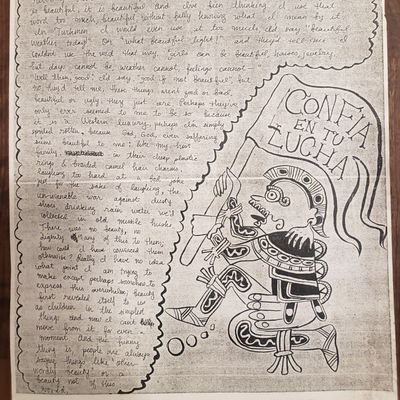 so beautiful, it is beautiful and I've been thinking I use that
word too much, beautiful without fully knowing what I mean by it
In Turkmen I would even use it too much, I'd say "beautiful
weather today!" Or "what beautiful light!" and they'd
couldn't use They said that way girls can be beautiful, houses, jewelry
but days cannot be, weather cannot, feelings cannot.
"Well then, good!" I'd say "good if not beautiful", but
no, they'd tell me, these things aren't good or bad,
beautiful or ugly, they just are. Perhaps they've
only ever seemed to me to be so because
it is a Western luxury, perhaps I'm simply
spoiled rotten, because God, even suffering
seems beautiful to me, like my host
family, in their cheap plastic
rings & braided camel hair charms,
laughing too hard at a bad joke
just for the sake of laughing, the
unwinnable war against dust,
shoes, drinking rain water we'd
collected in old missile husks
There was no beauty, no
in any of this to them,
how could I have convinced them
otherwise? Really I have no idea
what point I am trying to
make except perhaps somehow to
express this overwhelming beauty
first revealed itself to us
as children in the simplest
things and now it can't
move from it for even a
moment. And the funny
thing is, people are always
saying things like "other
worldly beauty" or a
beauty not of this
world,
CONFIA
EN TU
LUCHA